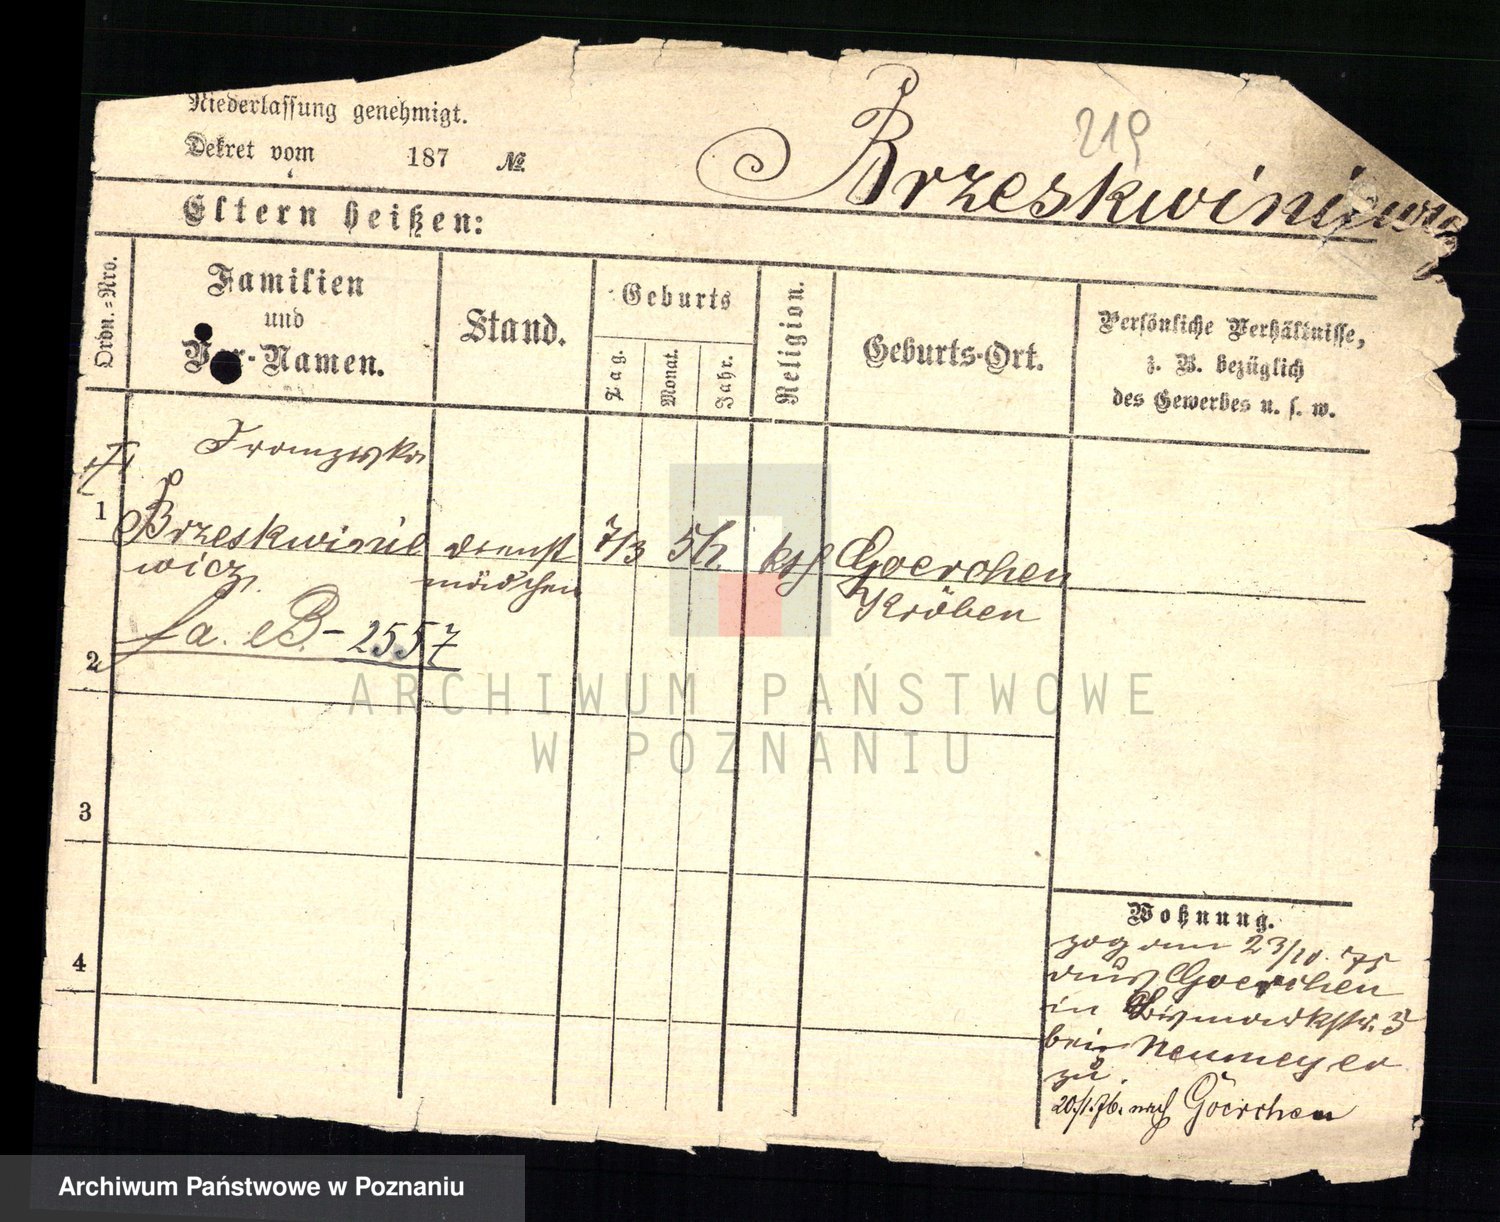 Niederlassung genehmigt.
Dekret vom 187 №
219
Brzeskwiniewicz
Eltern heißen:
Ordn.-Nro.
Familien
und
Vor-Namen.
Stand.
Geburts
Tag.
Monat.
Jahr.
Religion.
Geburts-Ort.
Persönliche Verhältnisse,
z. B. bezüglich
des Gewerbes u. s. w.
Franziska
1 Brzeskwinie dienst 7/3 57. kth Goerchen
wicz mädchen Kröben
fa. B.- 2557
2
3
4
Wohnung.
zog am 23/10. 75
aus Goerchen
in Bismarkstr. 5
bei Neumeyer
zu.
20/1.76. nach Görchen
ARCHIWUM PAŃSTWOWE
W POZNANIU
Archiwum Państwowe w Poznaniu